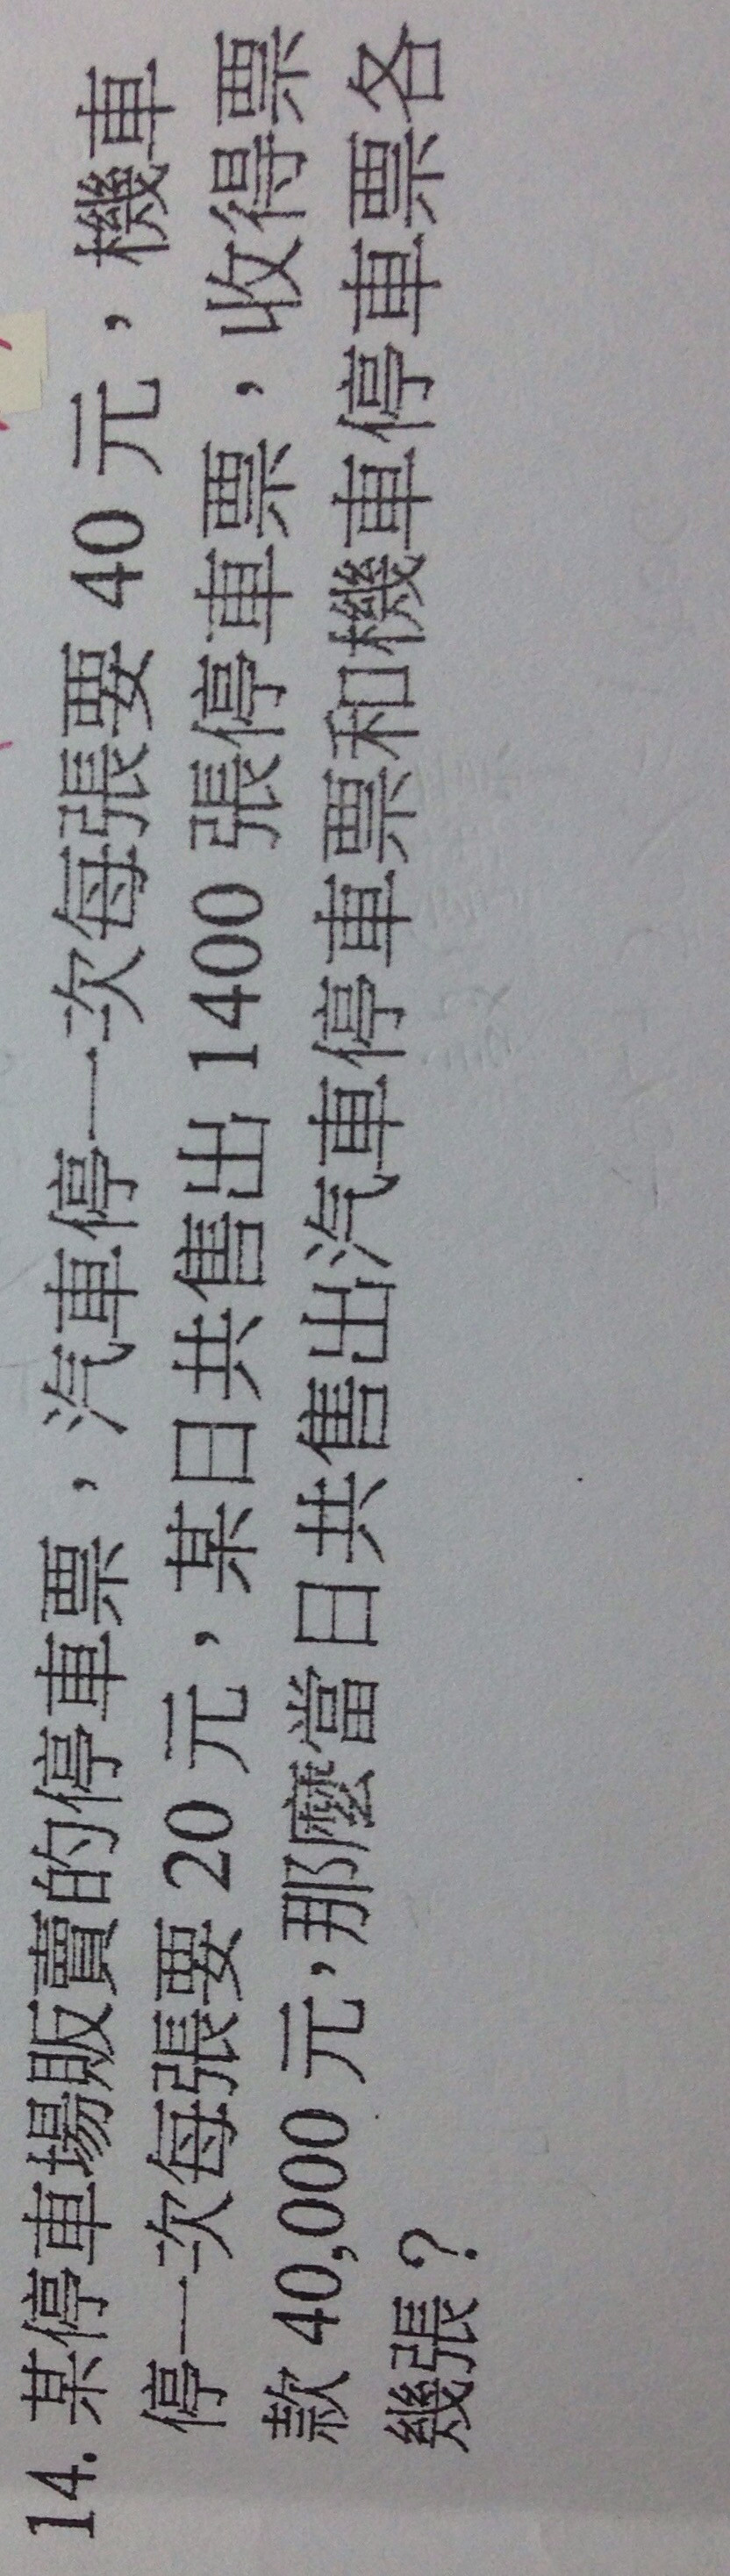 14. 某停車場販賣的停車票，汽車停一次每張要 40 元，機車
停一次每張要 20 元，某日共售出 1400 張停車票，收得票
款 40,000 元，那麼當日共售出汽車停車票和機車停車票各
幾張？